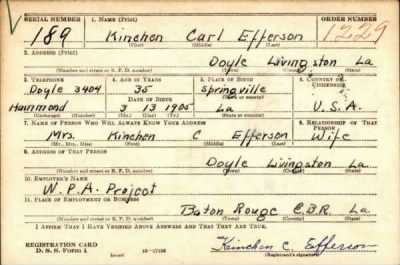 SERIAL NUMBER 1. NAME (Print) ORDER NUMBER
189 Kinchen Carl Efferson 1229
(First) (Middle) (Last)
2. ADDRESS (Print)
Doyle Livingston La
(Number and street or R. F. D. number) (Town) (County) (State)
3. TELEPHONE 4. AGE IN YEARS 5. PLACE OF BIRTH 6. COUNTRY OF CITIZENSHIP
Doyle 3404 35 Springville
DATE OF BIRTH (Town or county)
Hammond 3 13 1905 La U.S.A.
(Exchange) (Number) (Mo.) (Day) (Yr.) (State or country)
7. NAME OF PERSON WHO WILL ALWAYS KNOW YOUR ADDRESS 8. RELATIONSHIP OF THAT PERSON
Mrs. Kinchen C Efferson Wife
(Mr., Mrs., Miss) (First) (Middle) (Last)
9. ADDRESS OF THAT PERSON
Doyle Livingston La.
(Number and street or R. F. D. number) (Town) (County) (State)
10. EMPLOYER'S NAME
W.P.A. Project
11. PLACE OF EMPLOYMENT OR BUSINESS
Baton Rouge E.B.R. La
(Number and street or R. F. D. number) (Town) (County) (State)
I AFFIRM THAT I HAVE VERIFIED ABOVE ANSWERS AND THAT THEY ARE TRUE.
REGISTRATION CARD
D. S. S. Form 1 Kinchen C. Efferson
(Registrant's signature)